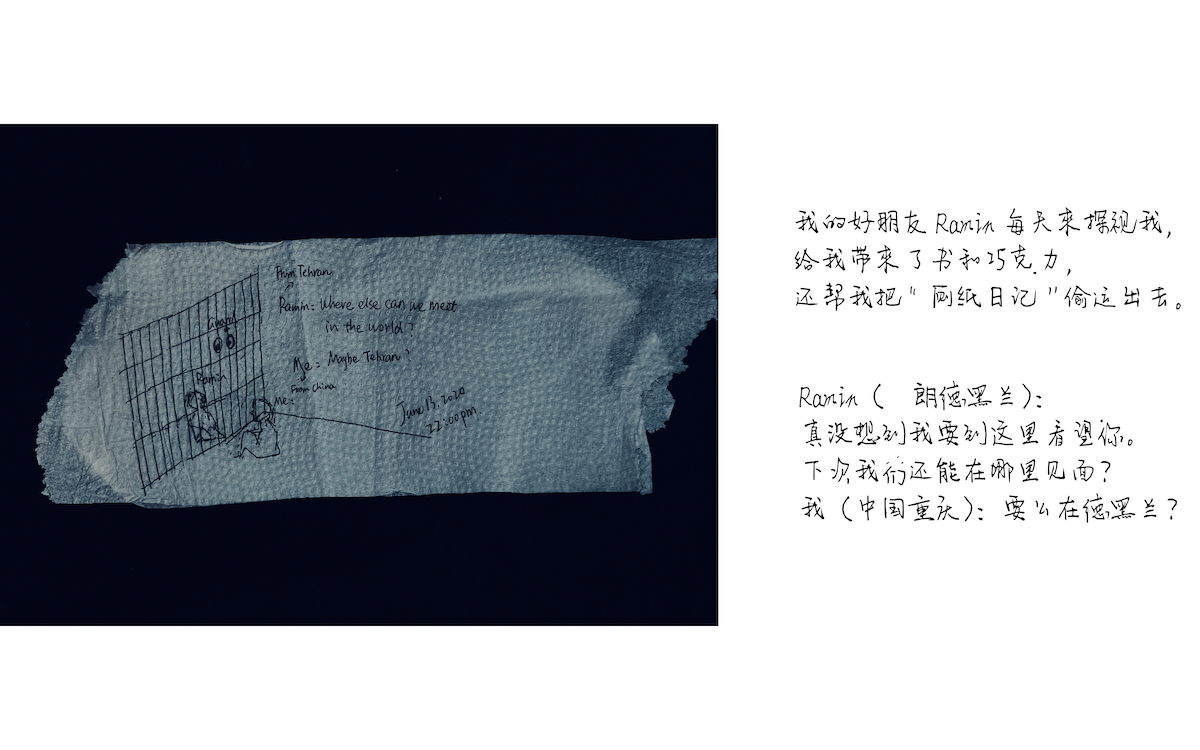 From Tehran
Ramin: Where else can we meet
in the world?
Guard
Me: Maybe Tehran?
Ramin
From China
Me:
June 13, 2020
22:00pm
我的好朋友 Ramin 每天来探视我,
给我带来了书和巧克力,
还帮我把“厕纸日记”偷运出去。
Ramin ( 朗德黑兰):
真没想到我要到这里看望你。
下次我们还能在哪里见面?
我 (中国重庆): 要么在德黑兰?